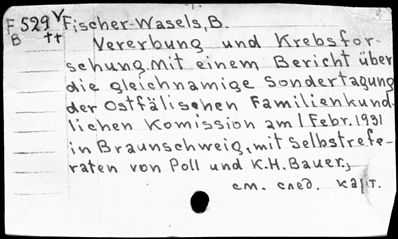 F 529 V Fischer-Wasels, B.
B tt Vererbung und Krebsfor-
schung. Mit einem Bericht über
die gleichnamige Sondertagung
der Ostfälischen Familienkund-
lichen Komission am 1 Febr. 1931
in Braunschweig, mit Selbstrefe-
raten von Poll und K.H. Bauer,
см. след. карт.